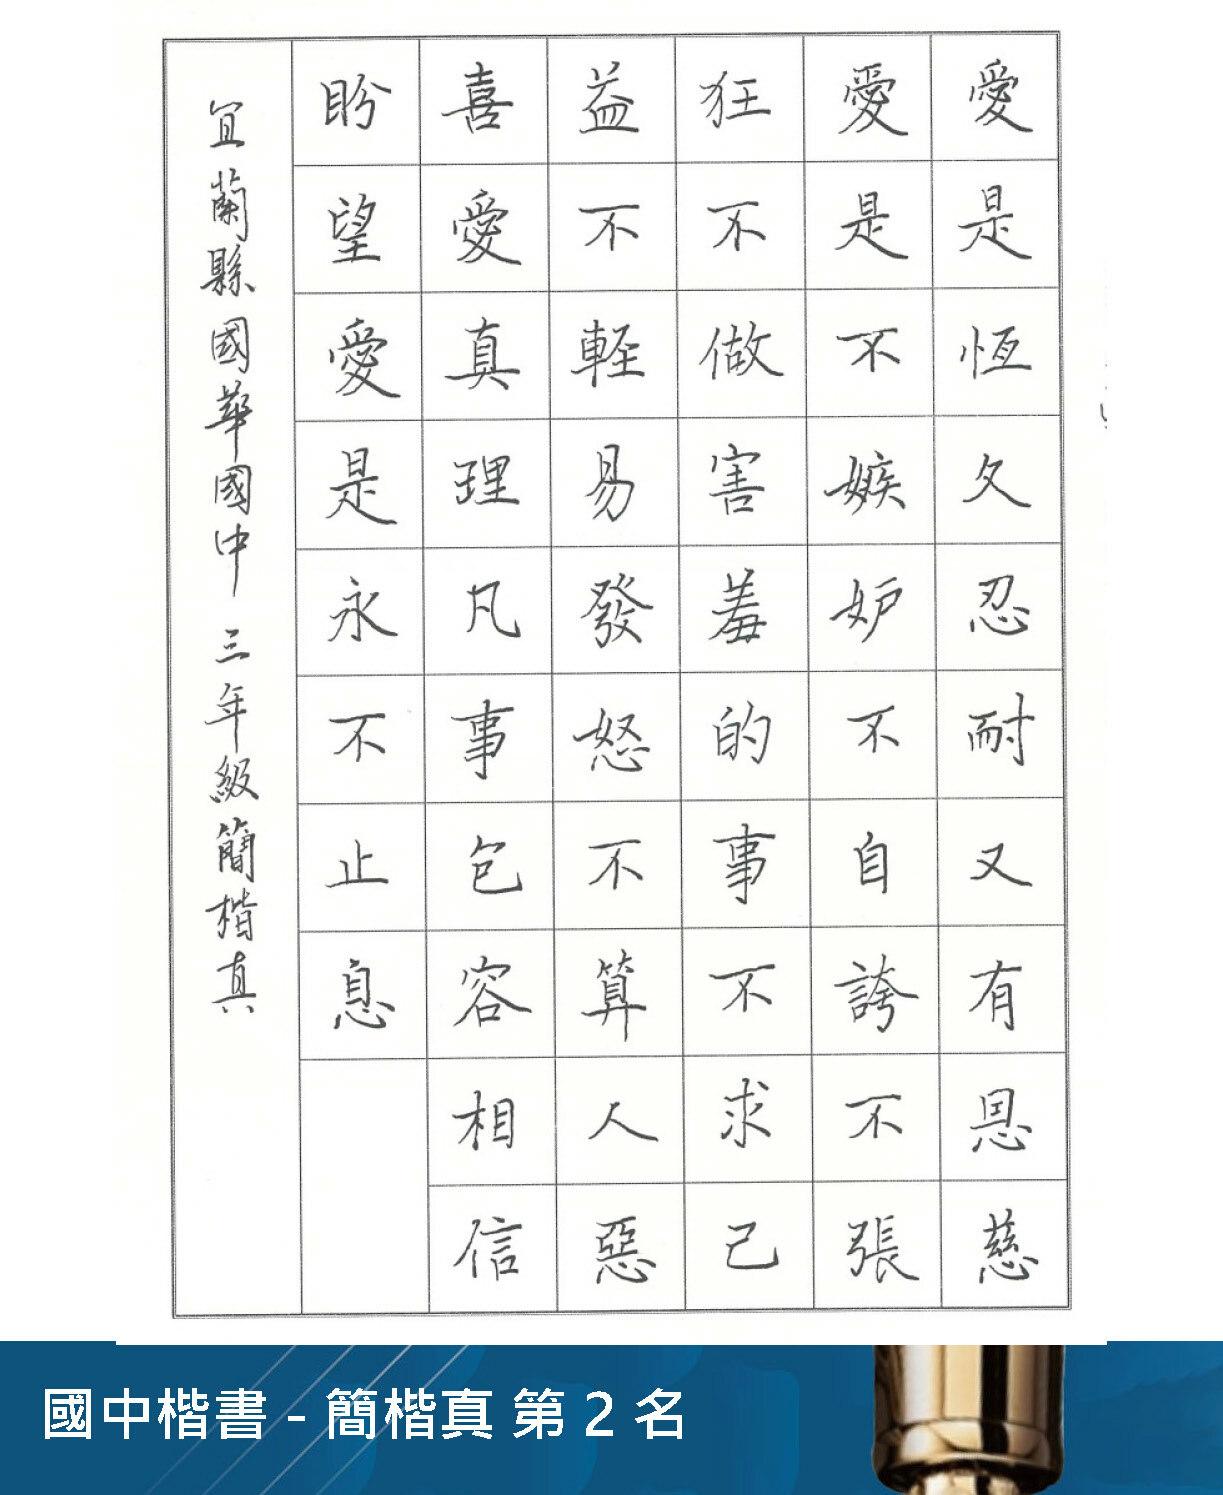 愛是恆久忍耐又有恩慈
愛是不嫉妒不自誇不張
狂不做害羞的事不求己
益不輕易發怒不算人惡
喜愛真理凡事包容相信
盼望愛是永不止息
宜蘭縣國華國中三年級簡楷真
國中楷書-簡楷真 第2名